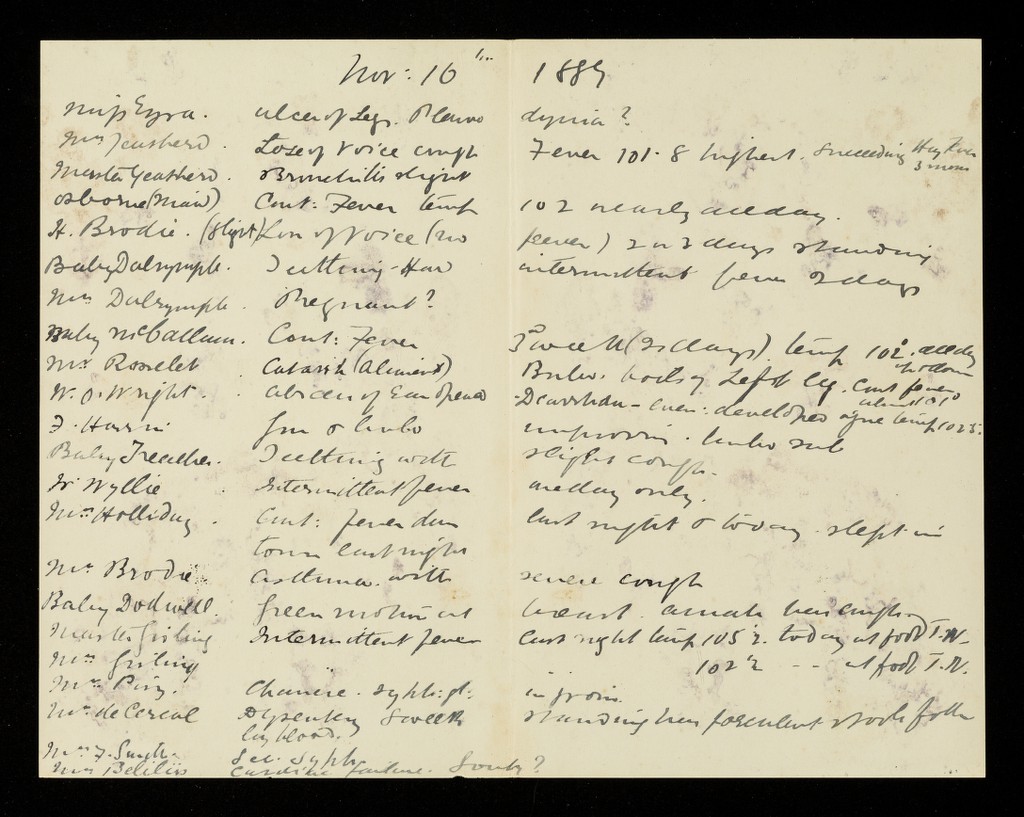 Nov: 16th 1889
Miss Ezra. ulcer of Legs. Pleuro dynia?
Mrs Geatherd. Loss of Voice cough Fever 101.8 highest. Succeeding Hay Fever
3 mons
Master Geatherd. Bronchitis slight
Osborne (Maid) Cont: Fever temp 102 nearly all day.
H. Brodie. (slight) Loss of Voice (no fever) 2 or 3 days standing
Baby Dalrymple. Teething - Had intermittent fever 2 days
Mrs Dalrymple. Pregnant?
Baby McCallum. Cont: Fever 3rd week (21 days). temp 102°. all day
Mr Rosselet Catarrh (Aliment) Left leg. Cont fever
about 101°
W. O. Wright. abscess of Ear opened - developed ague temp 102.5.
F. Harris improving.
Baby Treacher. Teething with slight cough.
W. Wyllie Intermittent fever one day only.
Mrs Holliday. Cont: fever last night & today. slept in
town last night
Mr Brodie asthma. with severe cough
Baby Dodwell. green motions at breast. cough
Master Girling Intermittent fever last night temp 105.2. today at foot T.N.
Mrs Girling 102.2 -- at foot T.N.
Mr Chancre. Syph: gl: in groin
Mr de Cereal Dysentery 3 weeks standing stools
by blood.
Mrs F. Smith. Sec. Syph
Mrs Belilios Cardiac failure. Gouty?